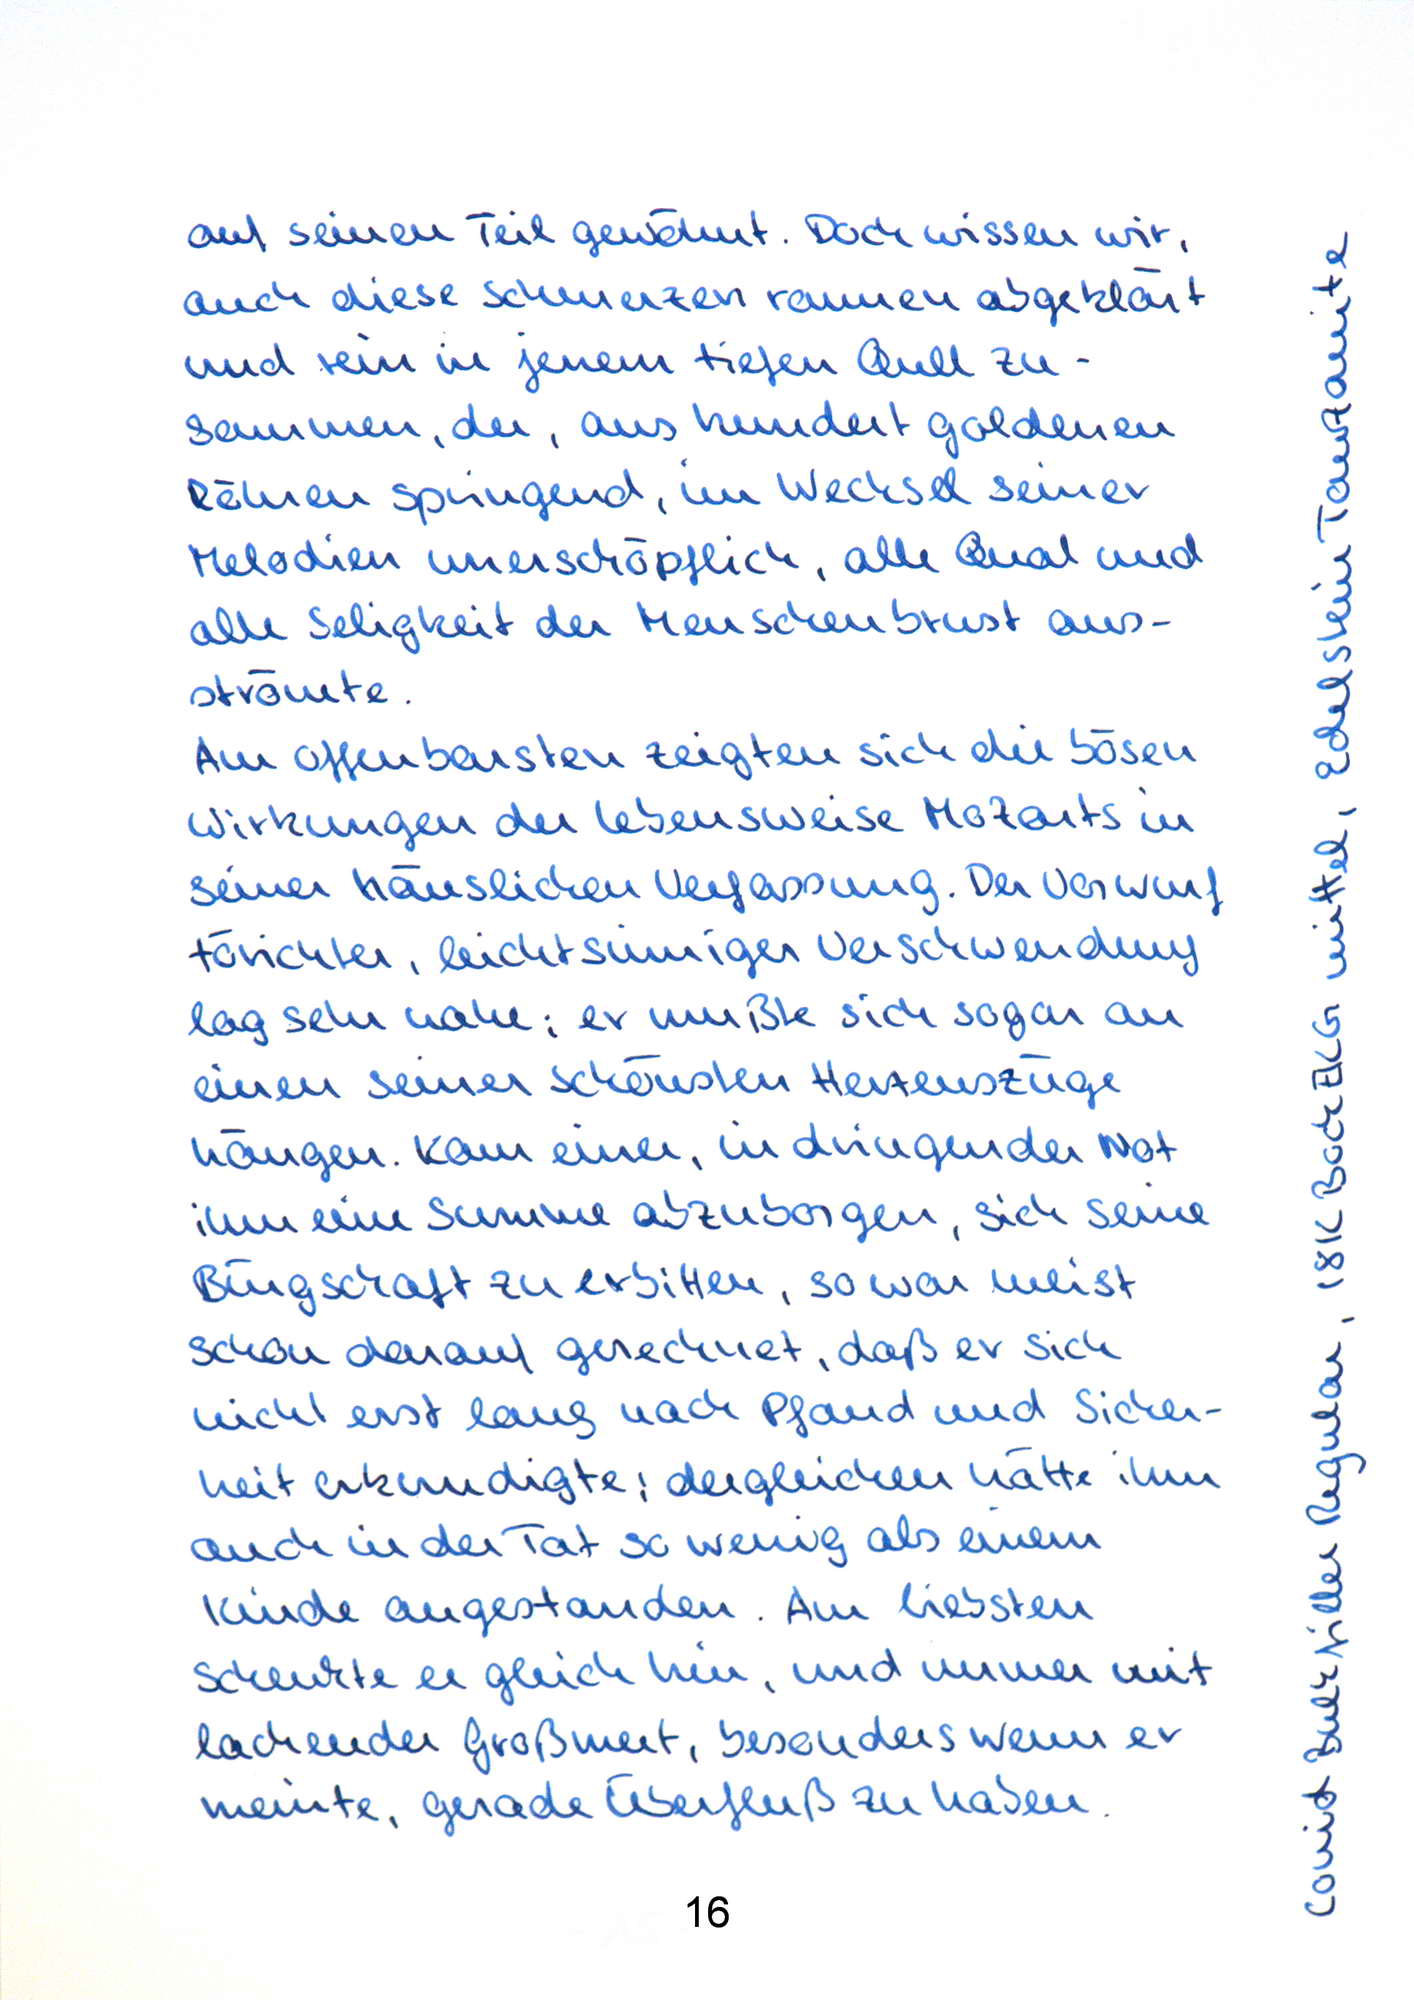 auf seinen Teil gewöhnt. Doch wissen wir,
auch diese Schmerzen rannen abgeklärt
und rein in jenem tiefen Quell zu-
sammen, der, aus hundert goldenen
Röhren springend, im Wechsel seiner
Melodien unerschöpflich, alle Qual und
alle Seligkeit der Menschenbrust aus-
strömte.
Am offenbarsten zeigten sich die bösen
Wirkungen der Lebensweise Mozarts in
seiner häuslichen Verfassung. Der Vorwurf
törichter, leichtsinniger Verschwendung
lag sehr nahe; er mußte sich sogar an
einen seiner schönsten Herzenszüge
hängen. Kam einer, in dringender Not
ihm eine Summe abzuborgen, sich seine
Bürgschaft zu erbitten, so war meist
schon darauf gerechnet, daß er sich
nicht erst lang nach Pfand und Sicher-
heit erkundigte; dergleichen hätte ihm
auch in der Tat so wenig als einem
Kinde angestanden. Am liebsten
schenkte er gleich hin, und immer mit
lachender Großmut, besonders wenn er
meinte, gerade Überfluß zu haben.
Conid Bulkfiller Regular, 18K Bock EKG mittel, Edelstein Tansanite
16